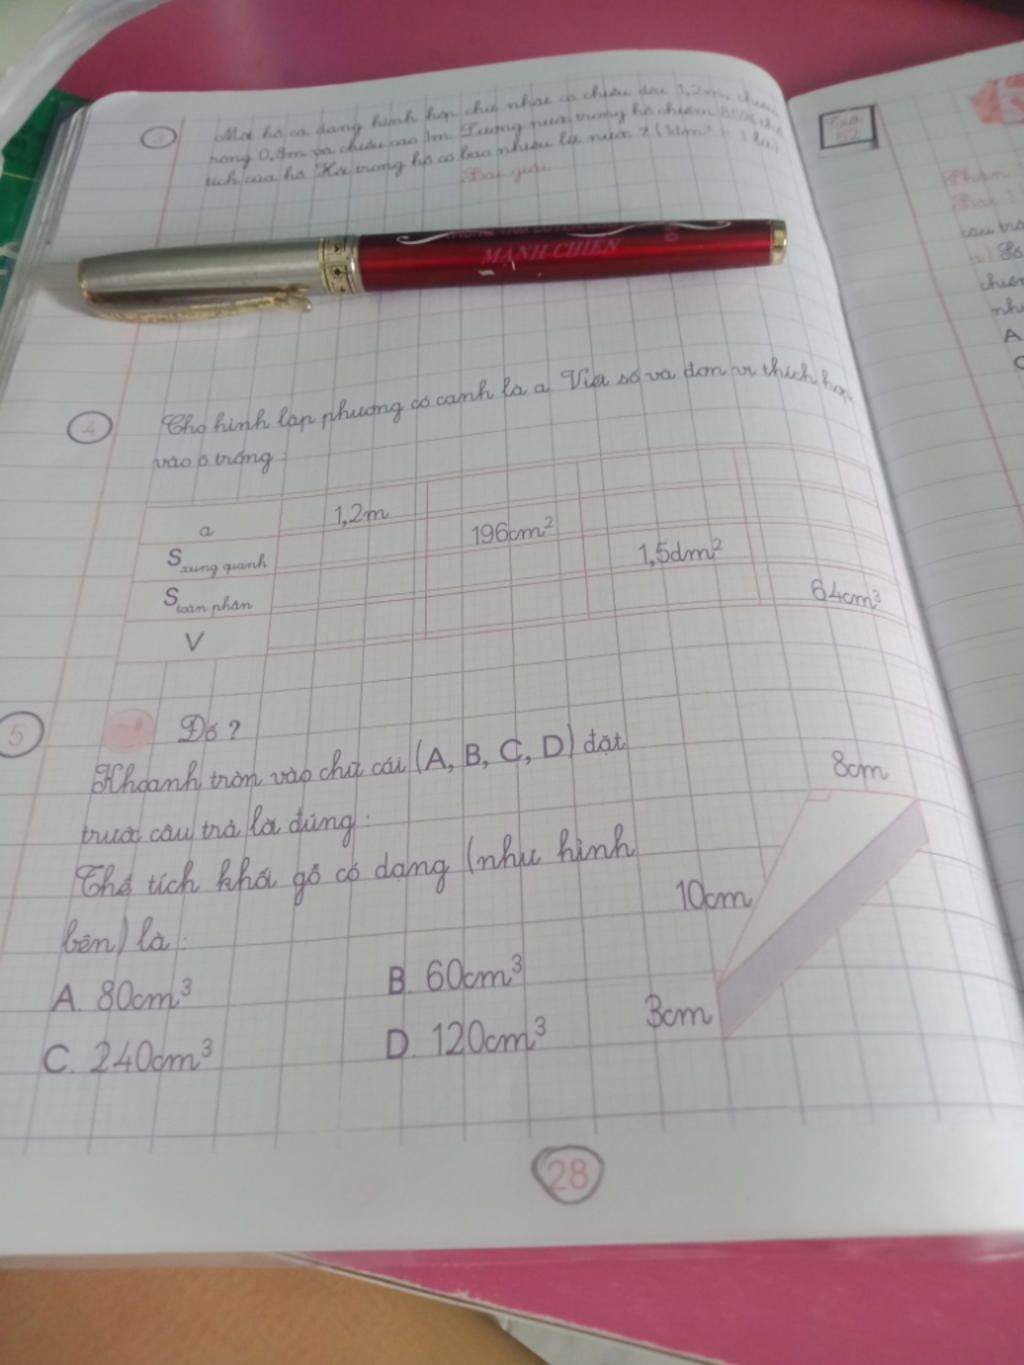 3 Một hồ cá dạng hình hộp chữ nhật có chiều dài 1,2m, chiều
rộng 0,8m và chiều cao 1m. Lượng nước trong hồ chiếm thể
tích của hồ. Hỏi trong hồ có bao nhiêu lít nước? (1dm³ = 1 lít)
Bài giải
MẠNH CHIẾN
4 Cho hình lập phương có cạnh là a. Viết số và đơn vị thích hợp
vào ô trống:
a 1,2m
S xung quanh 196cm²
S toàn phần 1,5dm²
V 64cm³
5 Đố?
Khoanh tròn vào chữ cái (A, B, C, D) đặt
trước câu trả lời đúng:
Thể tích khối gỗ có dạng (như hình
bên) là:
A. 80cm³ B. 60cm³
C. 240cm³ D. 120cm³
8cm
10cm
3cm
28
Phần
Bài 1
câu trả
a) Số
chiếm
A
C